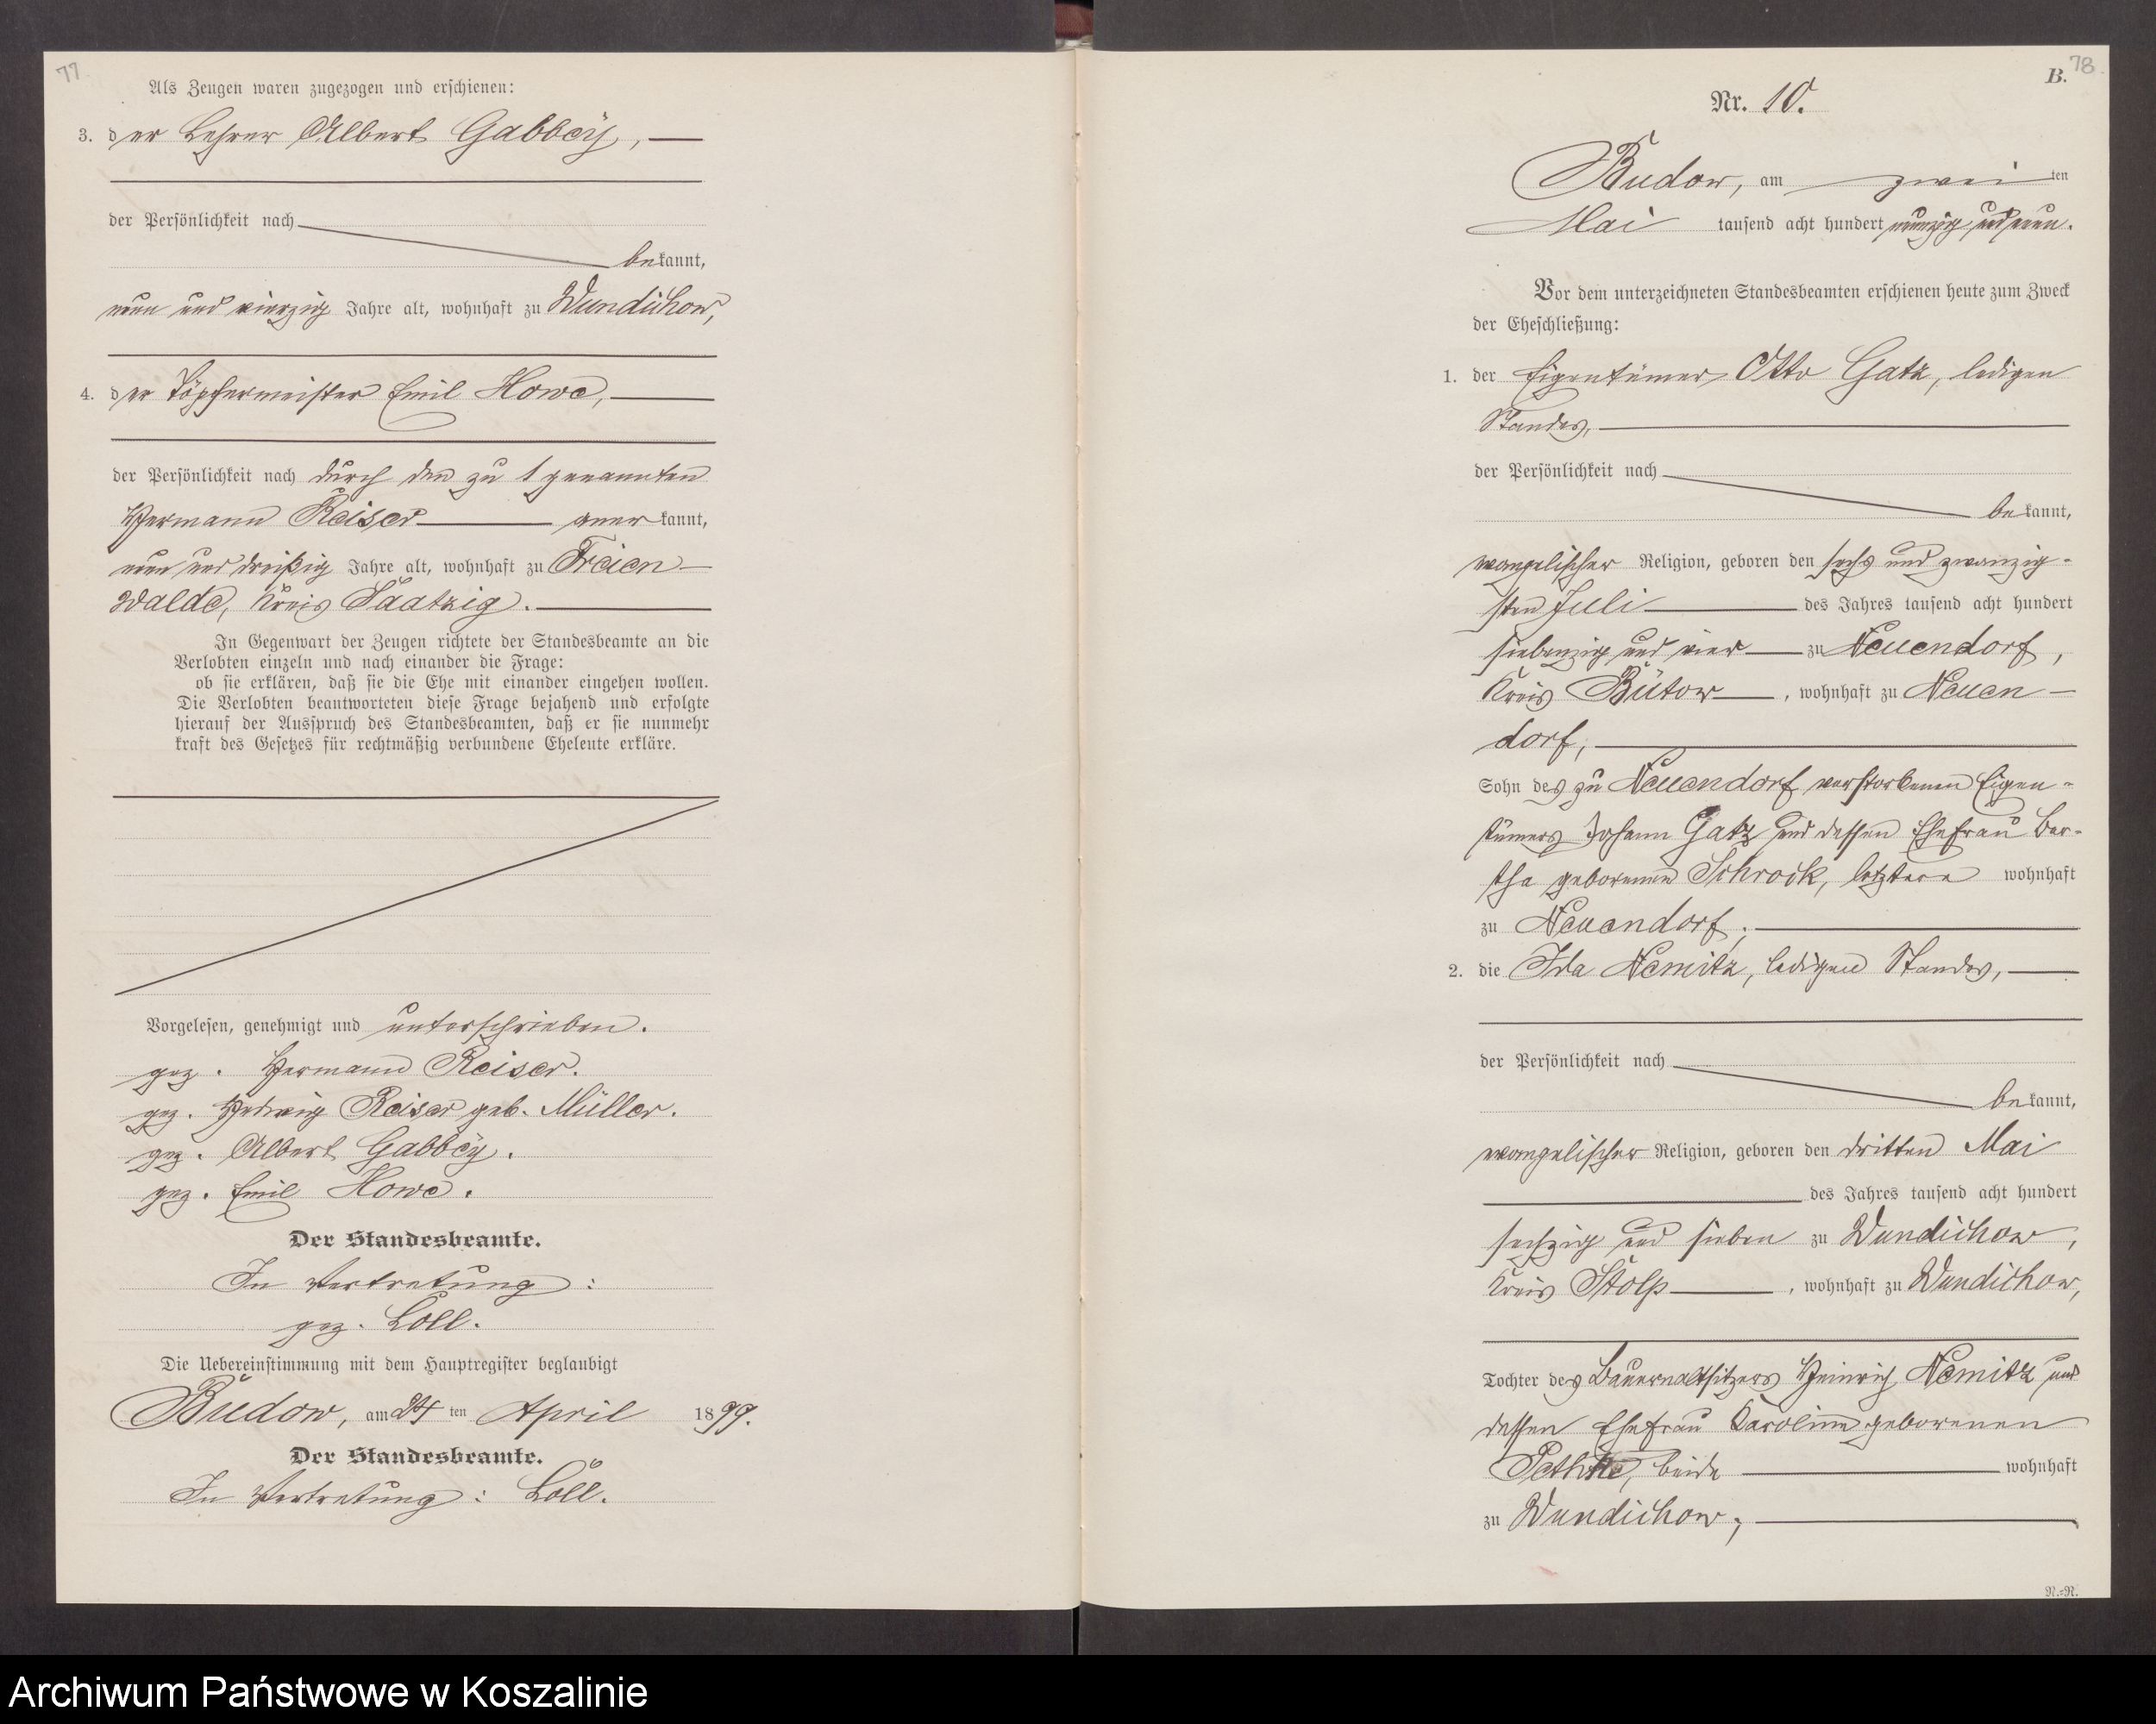 77.
Als Zeugen waren zugezogen und erschienen:
3. der Lehrer Albert Gabbëy,
der Persönlichkeit nach
bekannt,
neun und vierzig Jahre alt, wohnhaft zu Wundichow,
4. der Töpfermeister Emil Howe,
der Persönlichkeit nach durch den zu 1 genannten
Hermann Reiser anerkannt,
neun und dreißig Jahre alt, wohnhaft zu Freien-
walde, Kreis Saatzig.
In Gegenwart der Zeugen richtete der Standesbeamte an die
Verlobten einzeln und nach einander die Frage:
ob sie erklären, daß sie die Ehe mit einander eingehen wollen.
Die Verlobten beantworteten diese Frage bejahend und erfolgte
hierauf der Ausspruch des Standesbeamten, daß er sie nunmehr
kraft des Gesetzes für rechtmäßig verbundene Eheleute erkläre.
Vorgelesen, genehmigt und unterschrieben.
gez. Hermann Reiser.
gez. Hedwig Reiser geb. Müller.
gez. Albert Gabbëy.
gez. Emil Howe.
Der Standesbeamte.
In Vertretung:
gez. Löll.
Die Uebereinstimmung mit dem Hauptregister beglaubigt
Budow, am 24 ten April 1899.
Der Standesbeamte.
In Vertretung: Löll.
78.
B.
Nr. 10.
Budow, am zweiten
Mai tausend acht hundert neunzig und neun.
Vor dem unterzeichneten Standesbeamten erschienen heute zum Zweck
der Eheschließung:
1. der Eigentümer Otto Gatz, ledigen
Standes,
der Persönlichkeit nach
bekannt,
evangelischer Religion, geboren den sechs und zwanzig-
sten Juli des Jahres tausend acht hundert
siebenzig und vier zu Neuendorf,
Kreis Bütow, wohnhaft zu Neuen-
dorf,
Sohn des zu Neuendorf verstorbenen Eigen-
tümers Johann Gatz und dessen Ehefrau Ber-
tha geborenen Schrock, letztere wohnhaft
zu Neuendorf;
2. die Ida Nemitz, ledigen Standes,
der Persönlichkeit nach
bekannt,
evangelischer Religion, geboren den dritten Mai
des Jahres tausend acht hundert
sechzig und sieben zu Wundichow,
Kreis Stolp, wohnhaft zu Wundichow,
Tochter des Bauernaltsitzers Heinrich Nemitz und
dessen Ehefrau Karoline geborenen
Pethke, beide wohnhaft
zu Wundichow;
N.=N.
Archiwum Państwowe w Koszalinie